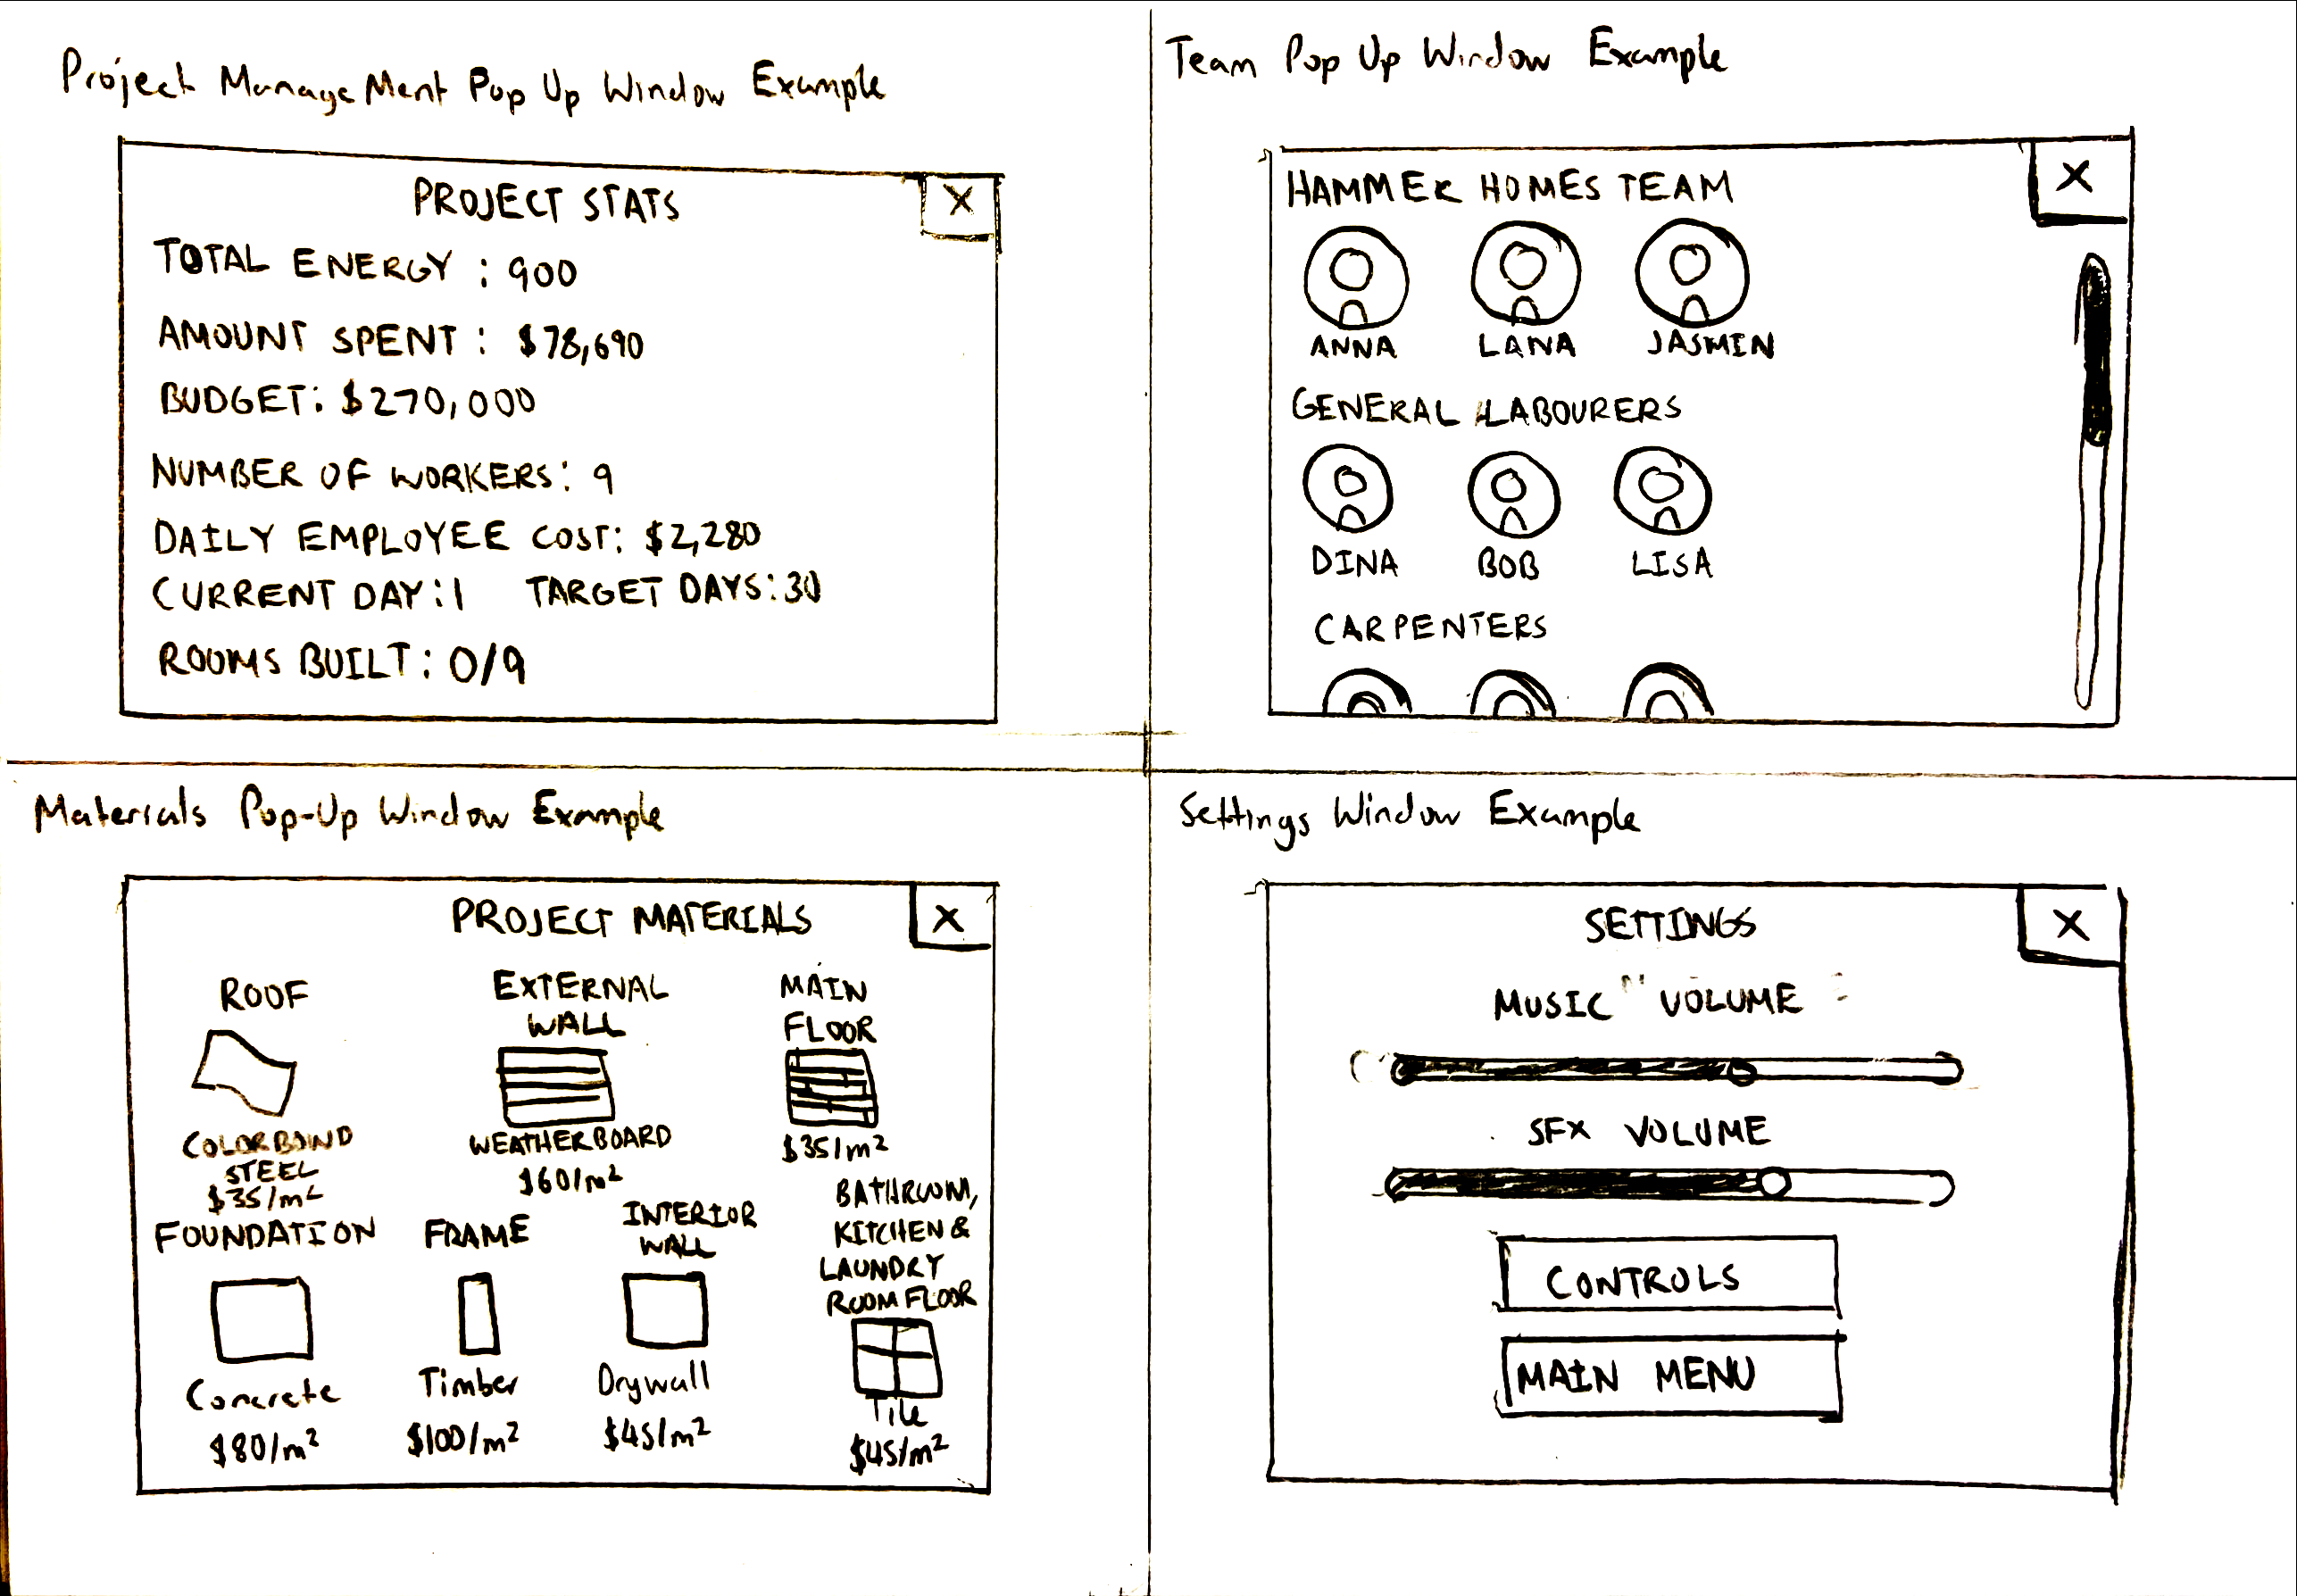 Project Management Pop Up Window Example
PROJECT STATS
X
TOTAL ENERGY : 900
AMOUNT SPENT : $78,690
BUDGET: $270,000
NUMBER OF WORKERS: 9
DAILY EMPLOYEE COST: $2,280
CURRENT DAY:1 TARGET DAYS:30
ROOMS BUILT: 0/9
Team Pop Up Window Example
X
HAMMER HOMES TEAM
ANNA LANA JASMIN
GENERAL LABOURERS
DINA BOB LISA
CARPENTERS
Materials Pop-Up Window Example
PROJECT MATERIALS
X
ROOF
COLORBOND
STEEL
$35/m²
EXTERNAL
WALL
WEATHERBOARD
$60/m²
MAIN
FLOOR
$35/m²
FOUNDATION
Concrete
$80/m²
FRAME
Timber
$100/m²
INTERIOR
WALL
Drywall
$45/m²
BATHROOM,
KITCHEN &
LAUNDRY
ROOM FLOOR
Tile
$45/m²
Settings Window Example
SETTINGS
X
MUSIC VOLUME
SFX VOLUME
CONTROLS
MAIN MENU